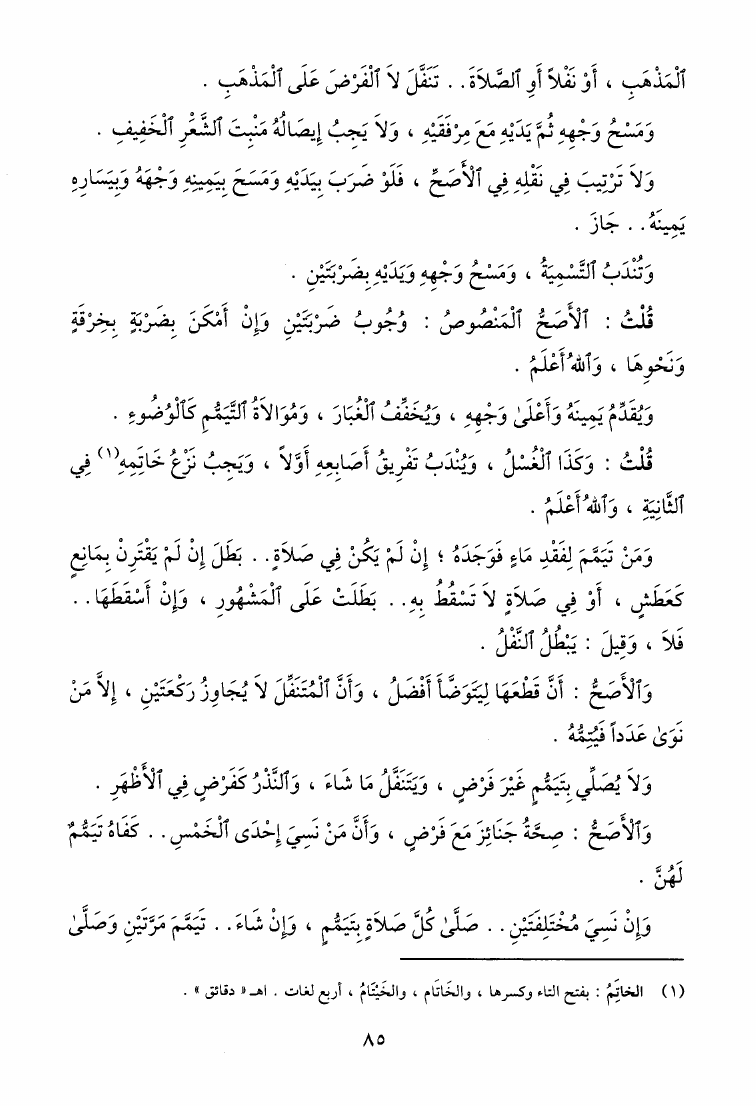 ٱلْمَذْهَبِ ، أَوْ نَفْلاً أَوِ ٱلصَّلاَةَ . . تَنَفَّلَ لاَ ٱلْفَرْضَ عَلَى ٱلْمَذْهَبِ .
وَمَسْحُ وَجْهِهِ ثُمَّ يَدَيْهِ مَعَ مِرْفَقَيْهِ ، وَلاَ يَجِبُ إِيصَالُهُ مَنْبِتَ ٱلشَّعْرِ ٱلْخَفِيفِ .
وَلاَ تَرْتِيبَ فِي نَقْلِهِ فِي ٱلأَصَحِّ ، فَلَوْ ضَرَبَ بِيَدَيْهِ وَمَسَحَ بِيَمِينِهِ وَجْهَهُ وَبِيَسَارِهِ
يَمِينَهُ . . جَازَ .
وَتُنْدَبُ ٱلتَّسْمِيَةُ ، وَمَسْحُ وَجْهِهِ وَيَدَيْهِ بِضَرْبَتَيْنِ .
قُلْتُ : ٱلأَصَحُّ ٱلْمَنْصُوصُ : وُجُوبُ ضَرْبَتَيْنِ وَإِنْ أَمْكَنَ بِضَرْبَةٍ بِخِرْقَةٍ
وَنَحْوِهَا ، وَٱللهُ أَعْلَمُ .
وَيُقَدِّمُ يَمِينَهُ وَأَعْلَىٰ وَجْهِهِ ، وَيُخَفِّفُ ٱلْغُبَارَ ، وَمُوَالاَةُ ٱلتَّيَمُّمِ كَٱلْوُضُوءِ .
قُلْتُ : وَكَذَا ٱلْغُسْلُ ، وَيُنْدَبُ تَفْرِيقُ أَصَابِعِهِ أَوَّلاً ، وَيَجِبُ نَزْعُ خَاتِمِهِ(١) فِي
ٱلثَّانِيَةِ ، وَٱللهُ أَعْلَمُ .
وَمَنْ تَيَمَّمَ لِفَقْدِ مَاءٍ فَوَجَدَهُ ؛ إِنْ لَمْ يَكُنْ فِي صَلاَةٍ . . بَطَلَ إِنْ لَمْ يَقْتَرِنْ بِمَانِعٍ
كَعَطَشٍ ، أَوْ فِي صَلاَةٍ لاَ تَسْقُطُ بِهِ . . بَطَلَتْ عَلَى ٱلْمَشْهُورِ ، وَإِنْ أَسْقَطَهَا . .
فَلاَ ، وَقِيلَ : يَبْطُلُ ٱلنَّفْلُ .
وَٱلأَصَحُّ : أَنَّ قَطْعَهَا لِيَتَوَضَّأَ أَفْضَلُ ، وَأَنَّ ٱلْمُتَنَفِّلَ لاَ يُجَاوِزُ رَكْعَتَيْنِ ، إِلاَّ مَنْ
نَوَىٰ عَدَداً فَيُتِمُّهُ .
وَلاَ يُصَلِّي بِتَيَمُّمٍ غَيْرَ فَرْضٍ ، وَيَتَنَفَّلُ مَا شَاءَ ، وَٱلنَّذْرُ كَفَرْضٍ فِي ٱلأَظْهَرِ .
وَٱلأَصَحُّ : صِحَّةُ جَنَائِزَ مَعَ فَرْضٍ ، وَأَنَّ مَنْ نَسِيَ إِحْدَى ٱلْخَمْسِ . . كَفَاهُ تَيَمُّمٌ
لَهُنَّ .
وَإِنْ نَسِيَ مُخْتَلِفَتَيْنِ . . صَلَّىٰ كُلَّ صَلاَةٍ بِتَيَمُّمٍ ، وَإِنْ شَاءَ . . تَيَمَّمَ مَرَّتَيْنِ وَصَلَّىٰ
(١) الخاتِمُ : بفتح التاء وكسرها ، والخَاتَام ، والخَيْتَامُ ، أربع لغات . اهـ « دقائق » .
٨٥